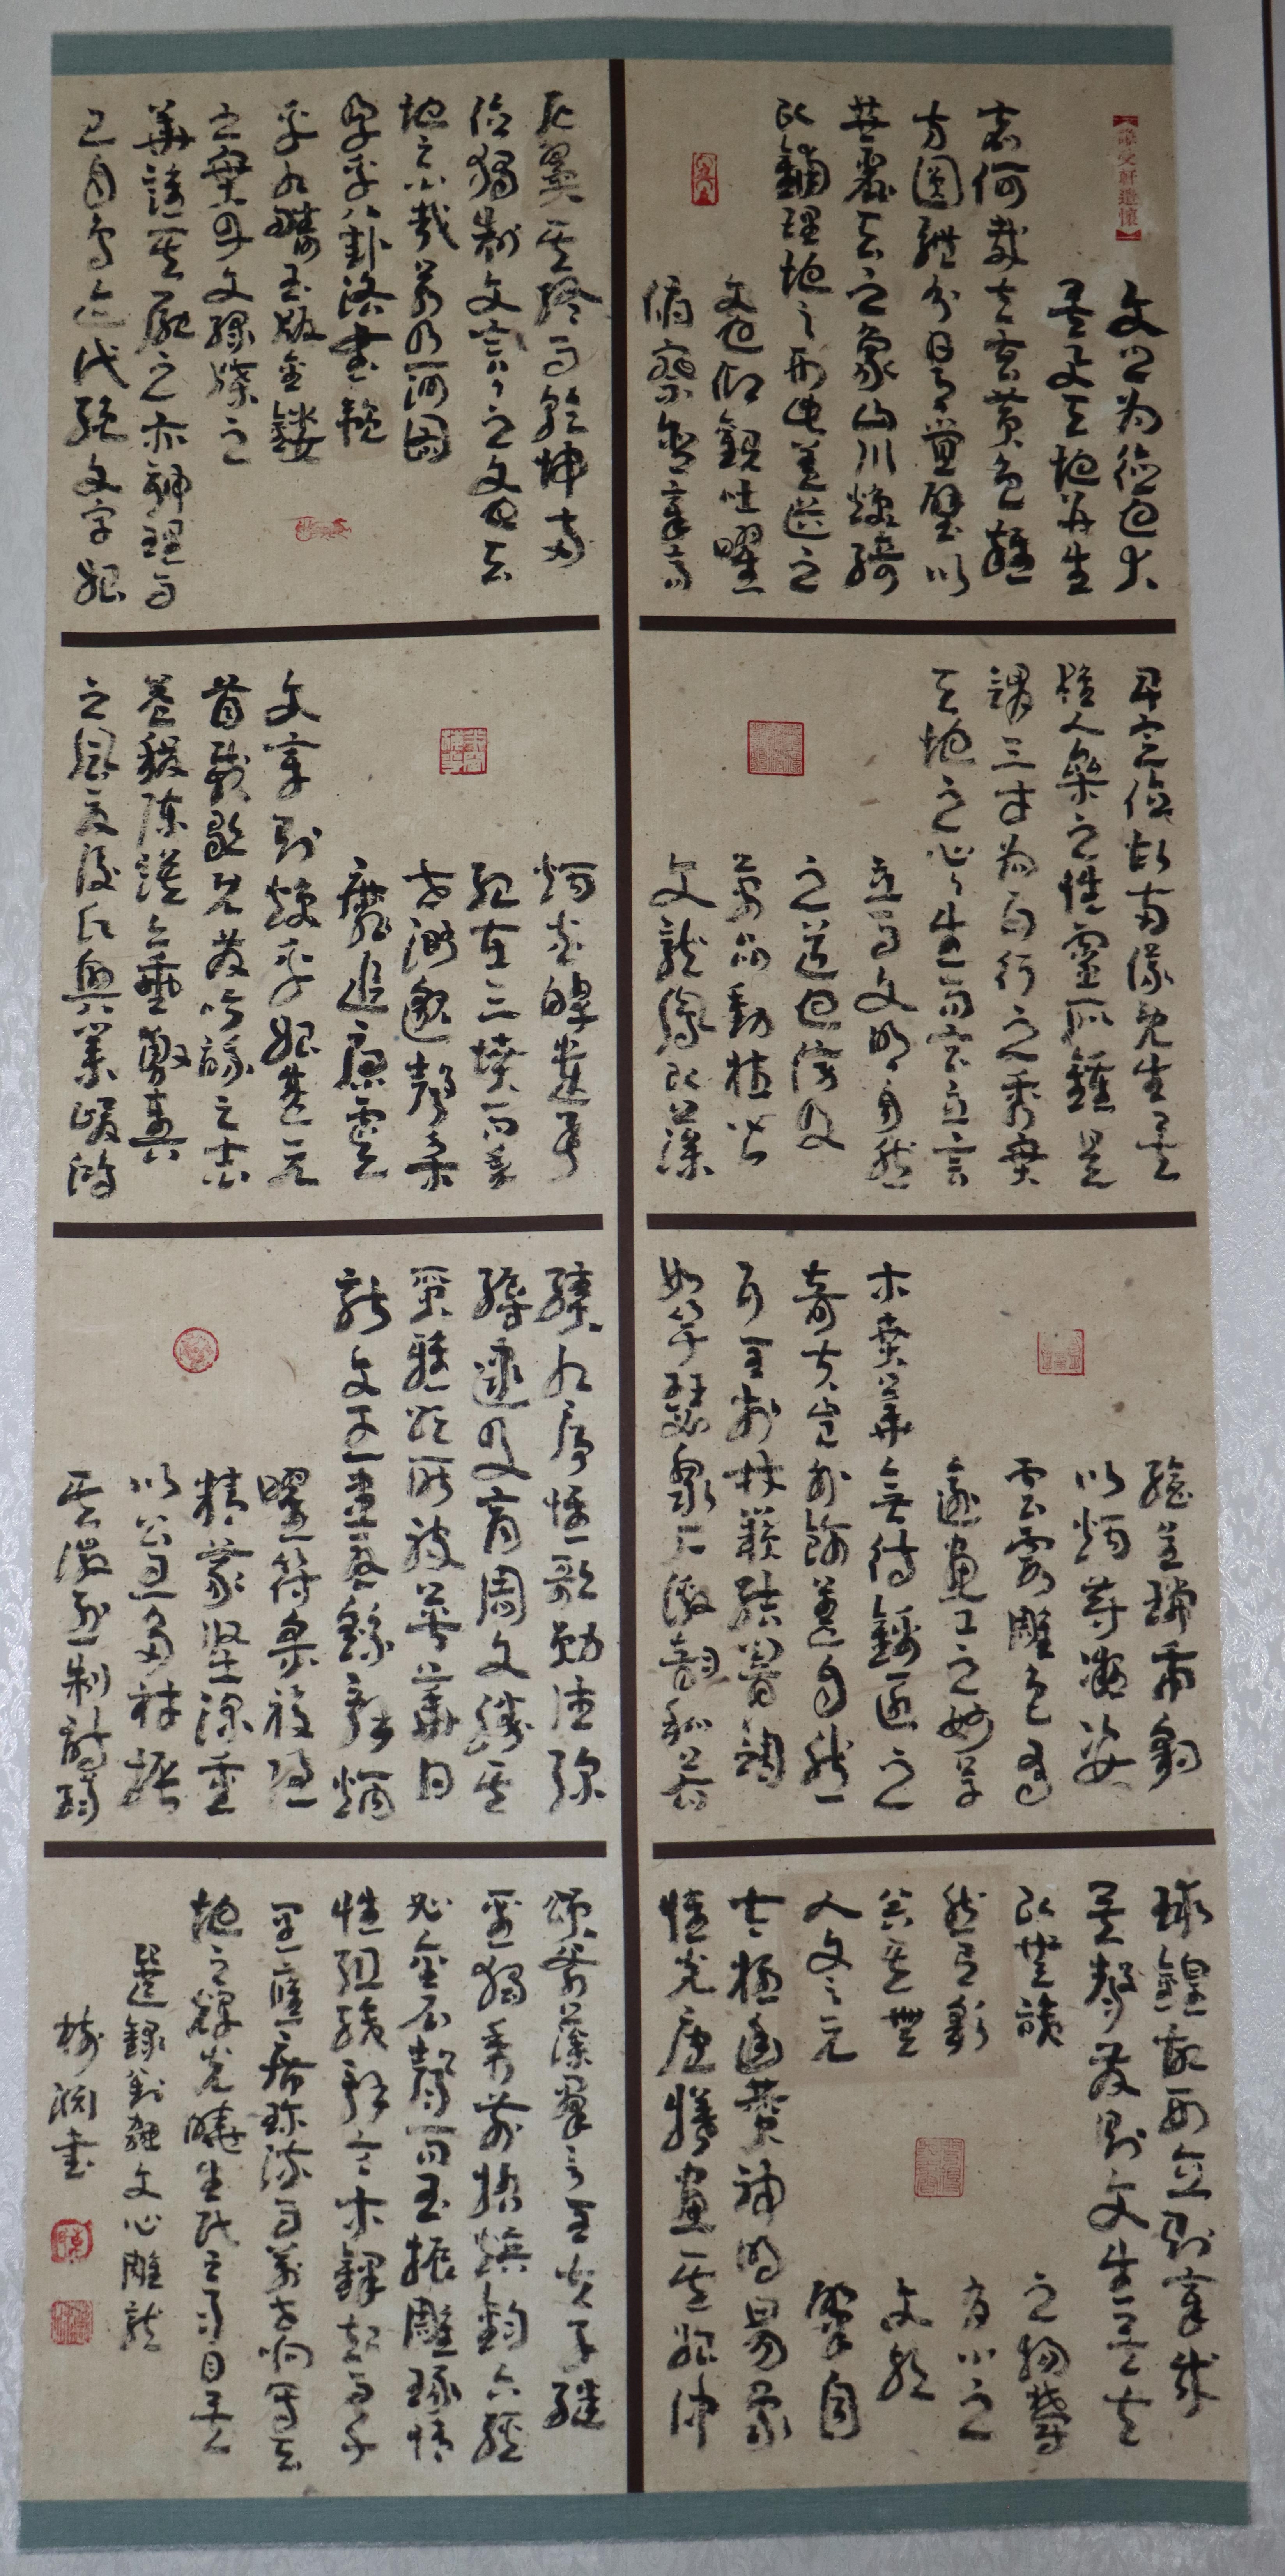 文之為德也大
矣與天地并生
者何哉夫玄黃色雜
方圓體分日月疊璧以
垂麗天之象山川煥綺
以鋪理地之形此蓋道之
文也仰觀吐曜
俯察含章高
卑定位故兩儀既生矣
惟人參之性靈所鍾是
謂三才為五行之秀實
天地之心心生而言立言
立而文明自然
之道也傍及
萬品動植皆
文龍鳳以藻
繪呈瑞虎豹
以炳蔚凝姿
雲霞雕色有
逾畫工之妙草
木賁華無待錦匠之
奇夫豈外飾蓋自然
耳至於林籟結響調
如竽瑟泉石激韻和若
球鍠故形立則章成
矣聲發則文生矣夫
以無識之物鬱
然有彩有心之
器其無文歟
人文之元肇自
太極幽贊神明易象
惟先庖犧畫其始仲
尼翼其終而乾坤兩
位獨制文言言之文也天
地之心哉若乃河圖
孕乎八卦洛書韞
乎九疇玉版金鏤
之實丹文綠牒之
華誰其尸之亦神理而
已自鳥跡代繩文字始
炳炎皞遺事
紀在三墳而年
世渺邈聲采
靡追唐虞
文章則煥乎始盛元
首載歌既發吟詠之志
益稷陳謨亦垂敷奏
之風夏后氏興業峻鴻
績九序惟歌勳德彌
縟逮及商周文勝其
質雅頌所被英華日
新文王患憂繇辭炳
曜符采複隱
精義堅深重
以公旦多材振
其徽烈制詩緝
頌斧藻群言至夫子繼
聖獨秀前哲熔鈞六經
必金石聲而玉振雕琢情
性組織辭令木鐸起而千
里應席珍流而萬世響寫天
地之輝光曉生民之耳目矣
選錄劉勰文心雕龍
書